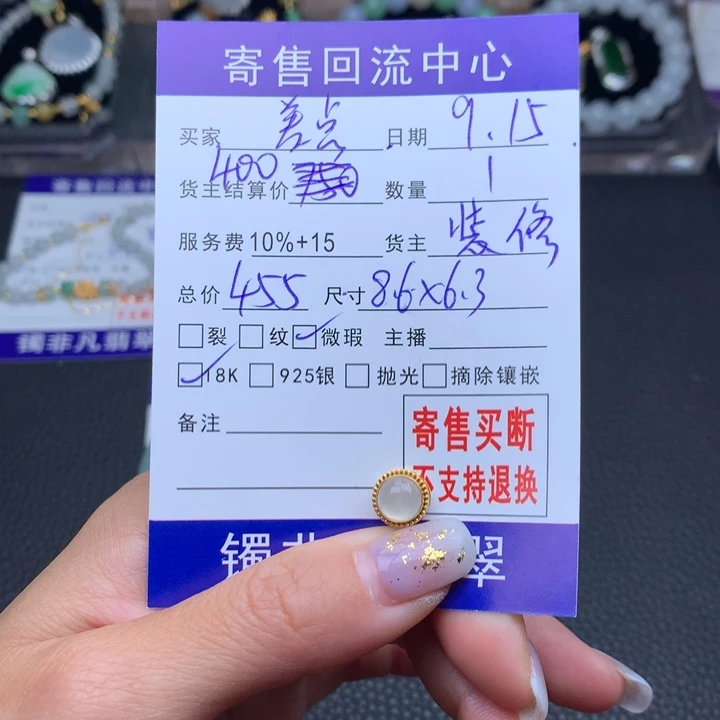 寄售回流中心
买家 差点 日期 9.15
货主结算价 400 数量 1
服务费 10%+15 货主 装修
总价 455 尺寸 8.6×6.3
裂 纹 微瑕 主播
18K 925银 抛光 摘除镶嵌
备注
寄售买断
不支持退换
镯非 翠
寄售回流中
镯非凡翡翠